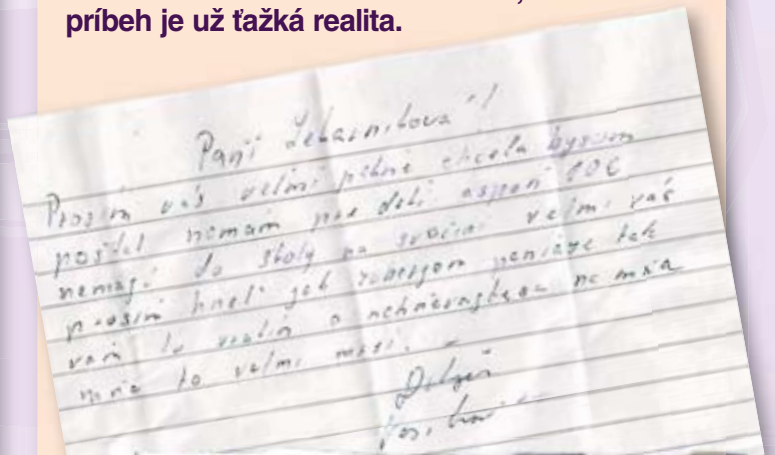 príbeh je už ťažká realita.
Pani Lekarnikova!
Prosím vás velmi pekne chcela bysom
poščt nemám pre deti aspoň 10€
nemajú do školy na svačiu velmi vás
prosím hneť jak zoberjom peniaze tak
vám to vratim a nehnevajťesa na mňa
mňe to velmi mrzí.